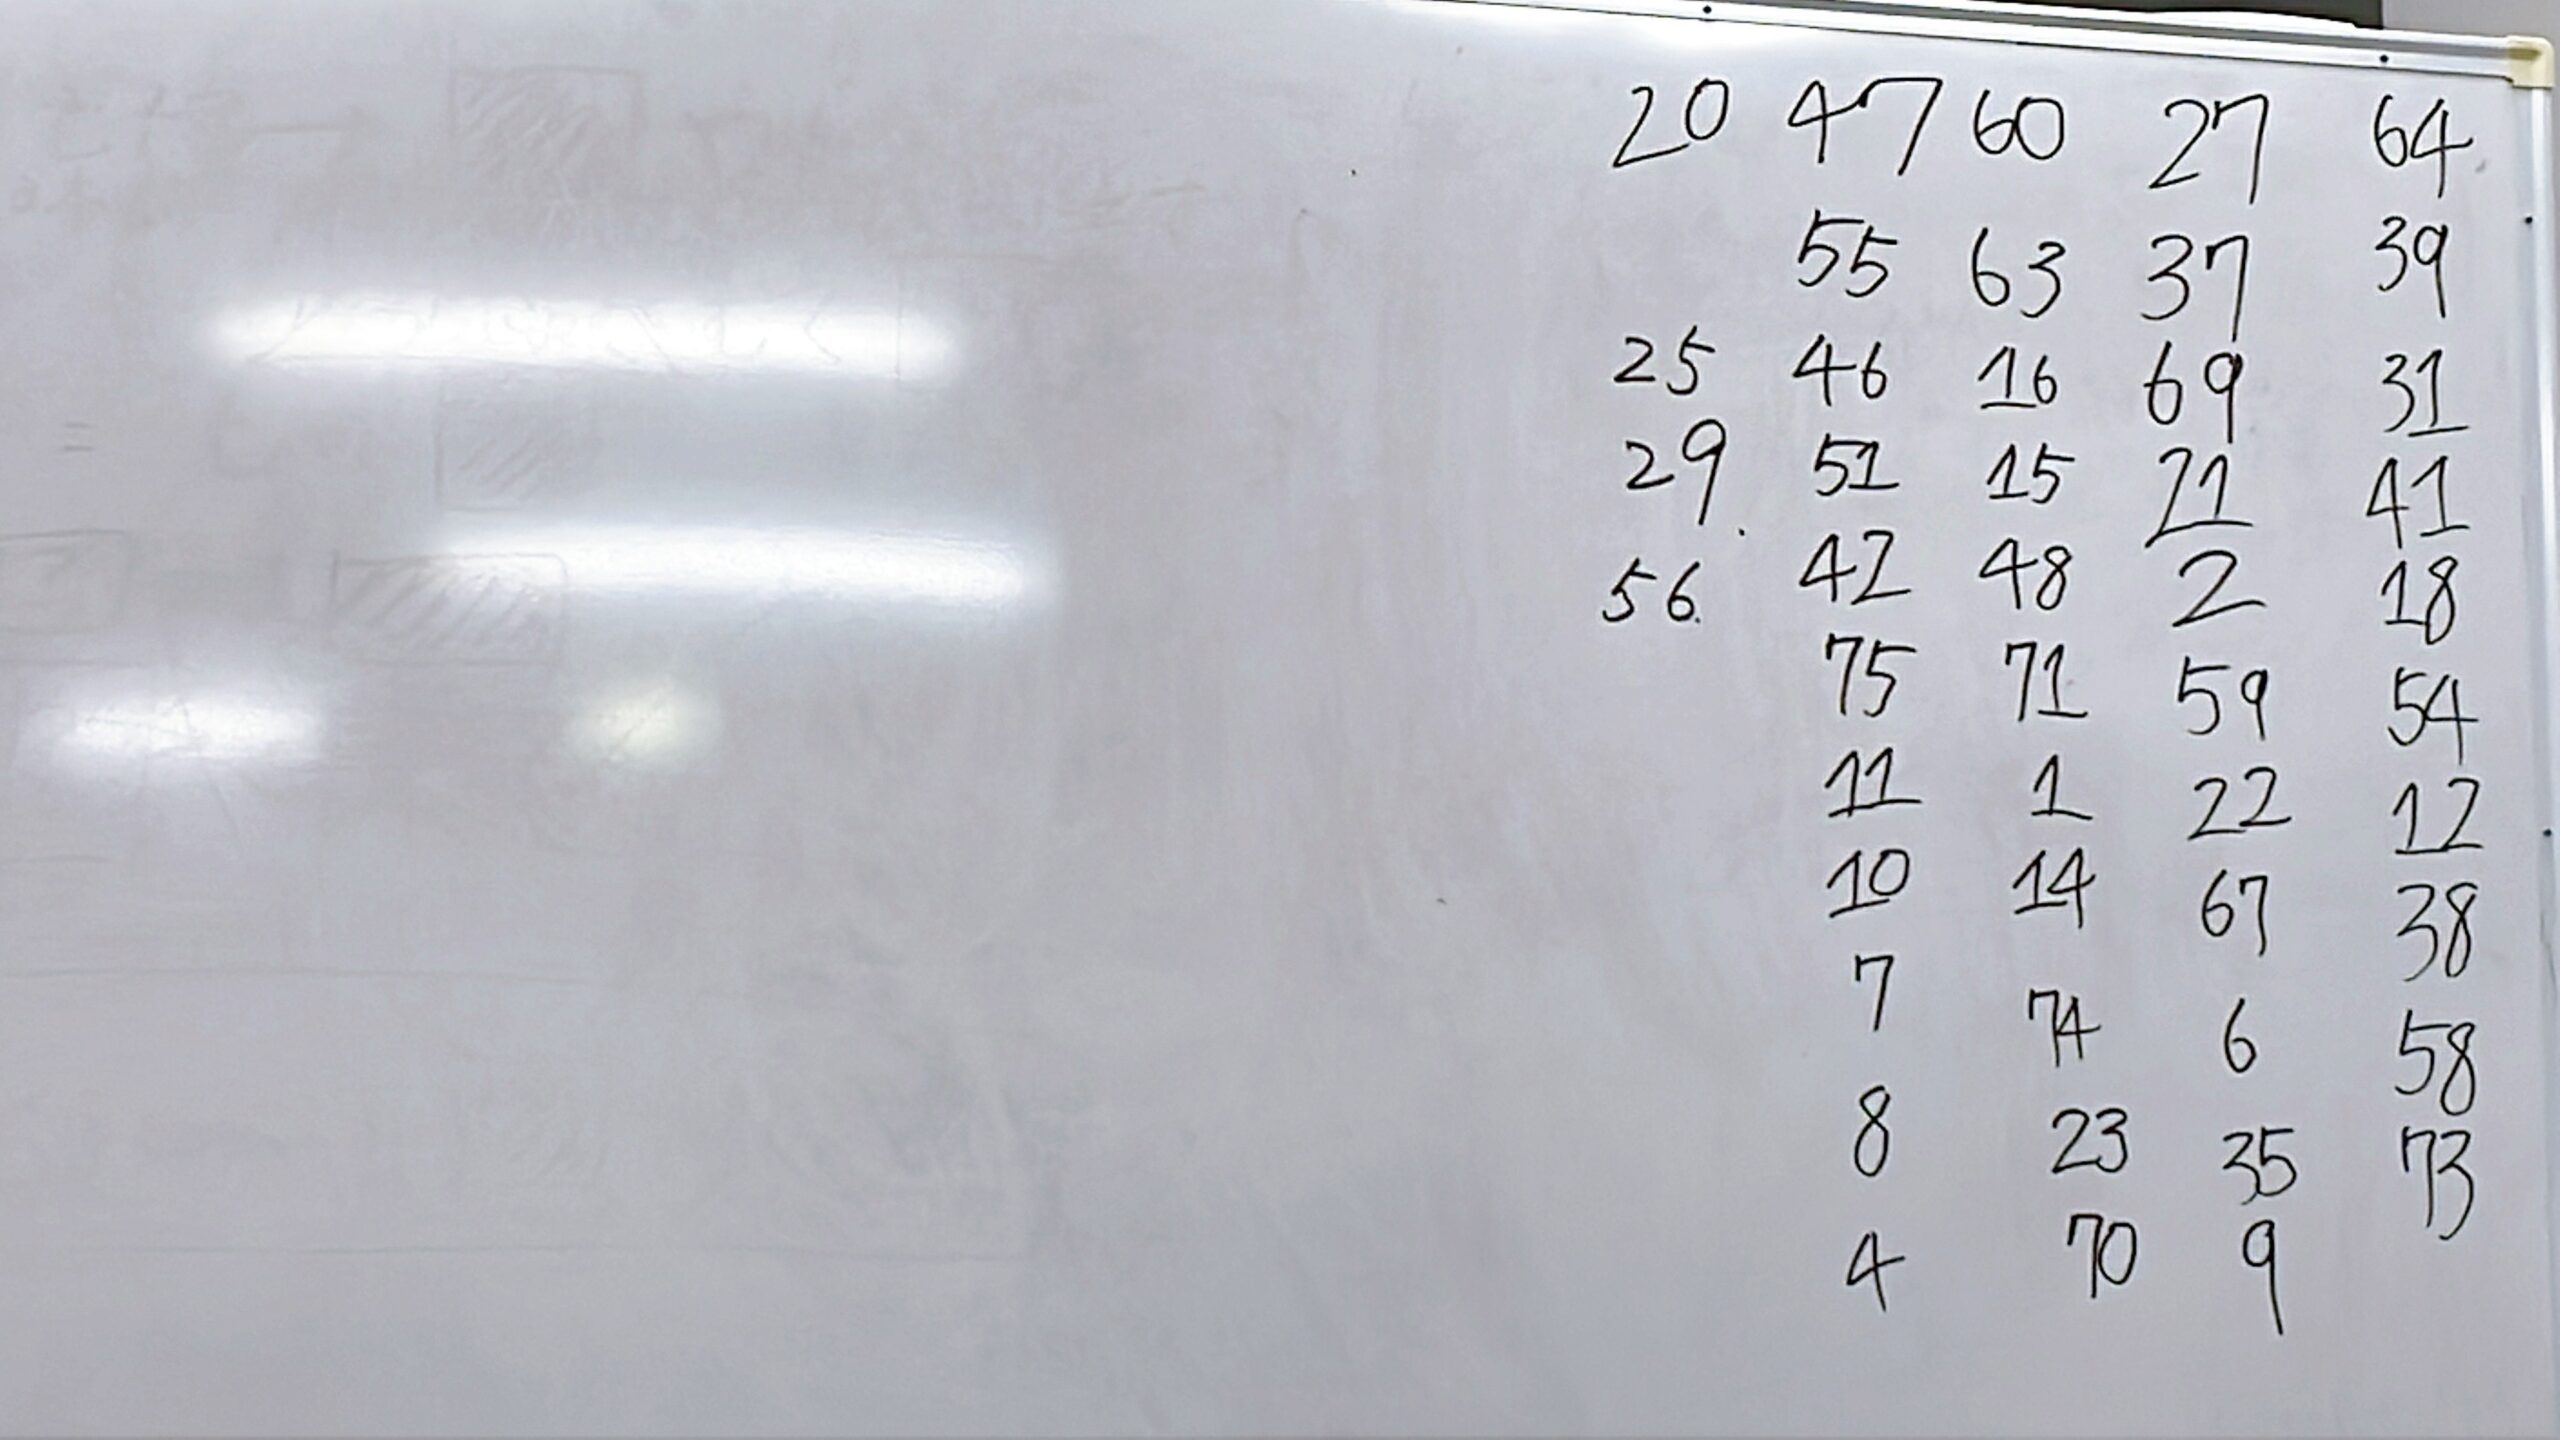 20 47 60 27 64
55 63 37 39
25 46 16 69 31
29 51 15 21 41
56 42 48 2 18
75 71 59 54
11 1 22 12
10 14 67 38
7 74 6 58
8 23 35 73
4 70 9